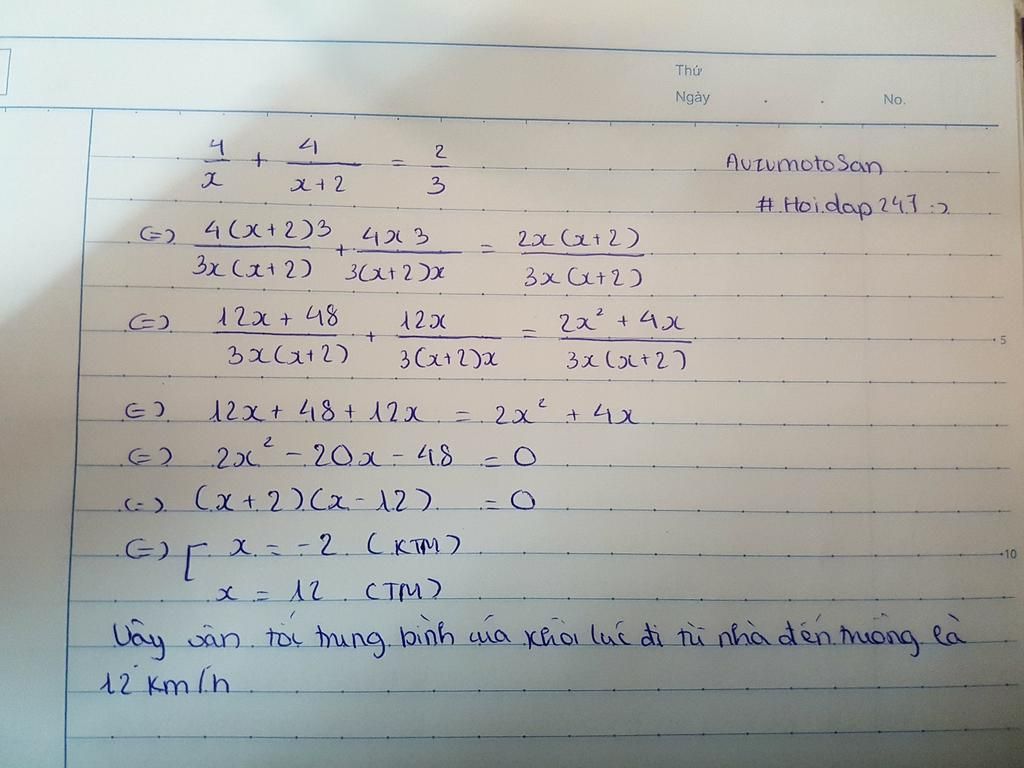 Thứ
Ngày . . No.
4/x + 4/(x+2) = 2/3
AuzumotoSan
#Hoidap247 :>
<=> 4(x+2)3/3x(x+2) + 4x3/3(x+2)x = 2x(x+2)/3x(x+2)
<=> 12x + 48/3x(x+2) + 12x/3(x+2)x = 2x² + 4x/3x(x+2)
5
<=> 12x + 48 + 12x = 2x² + 4x
<=> 2x² - 20x - 48 = 0
<=> (x+2)(x-12) = 0
<=> [ x = -2 (KTM)
10
x = 12 (TM)
Vậy vận tốc trung bình của Khôi lúc đi từ nhà đến trường là
12 km/h